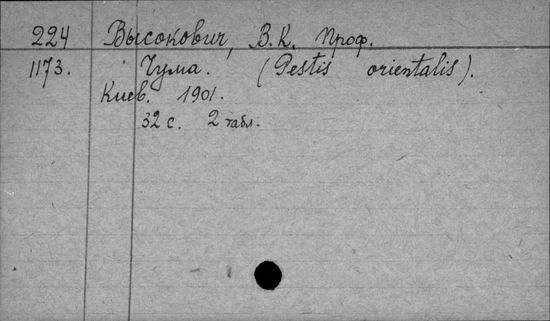 224 Высокович, В.К. Проф.
1173. Чума. (Pestis orientalis).
Киев. 1901.
32 с. 2 табл.